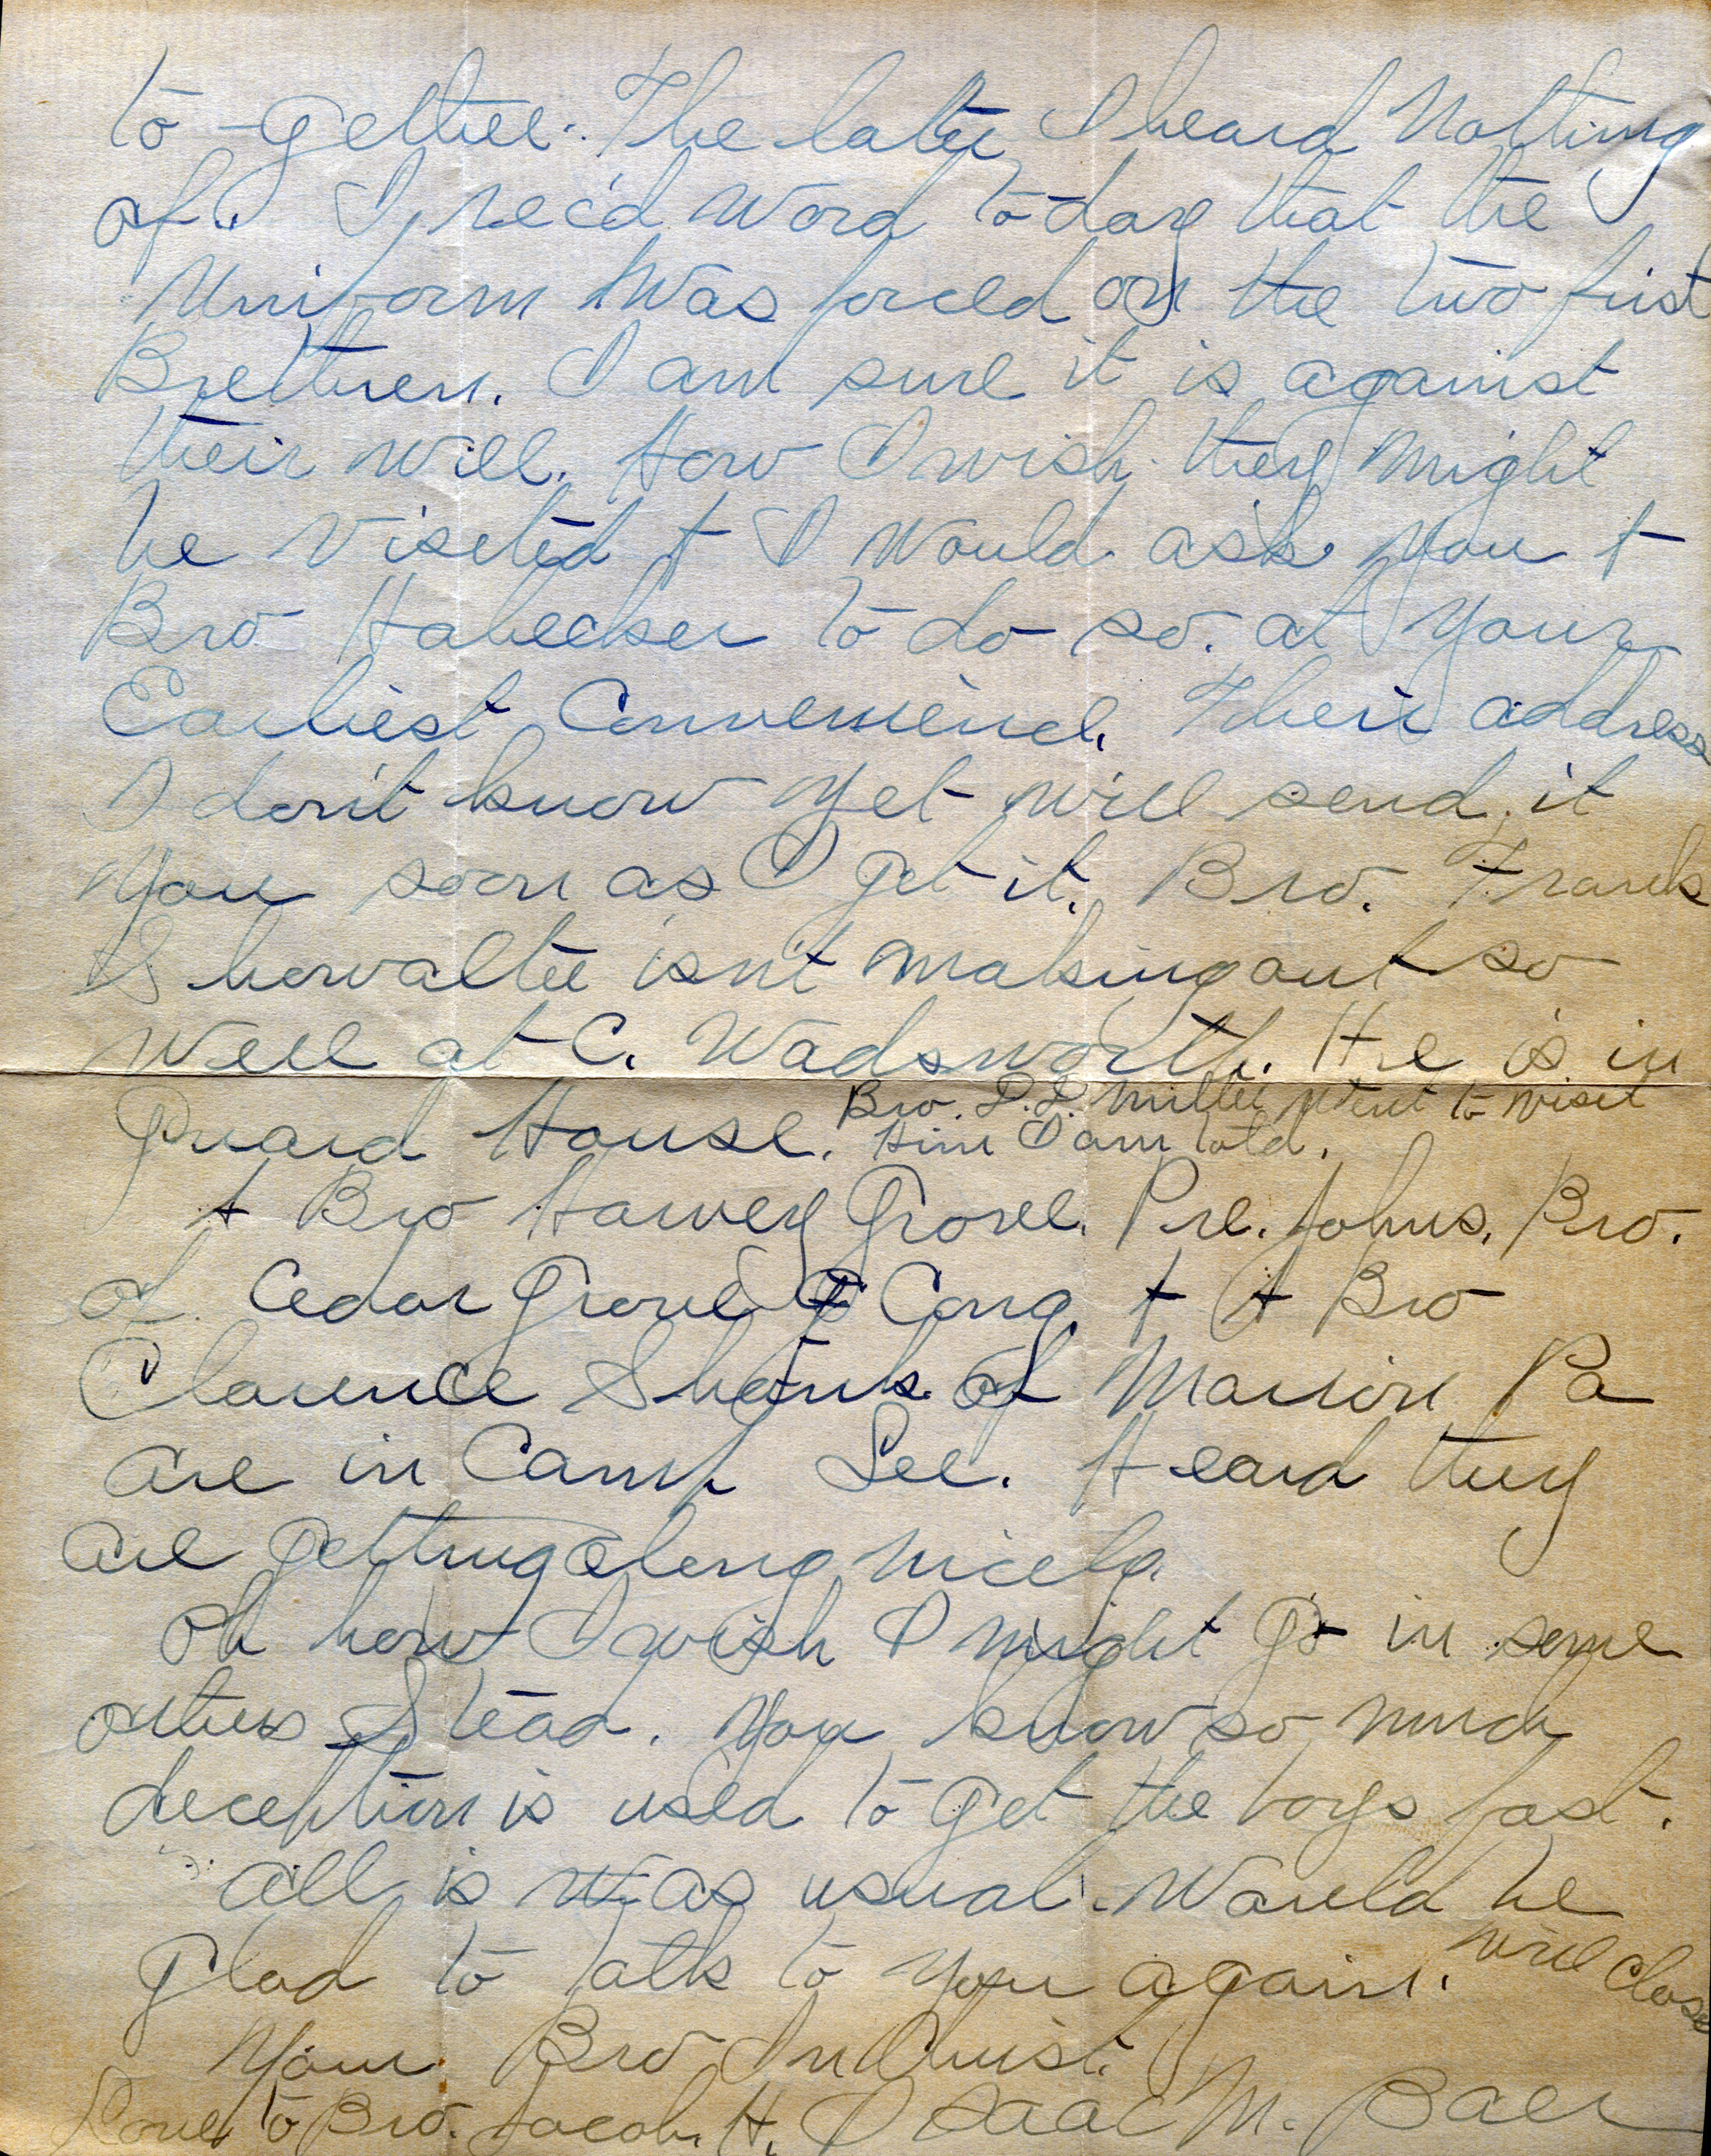 to-gether. The later I heard Nothing
of. I rec'd Word to-day that the
Uniform Was forced on the two first
Brethren. I am sure it is against
their will. How I wish they might
be Visited + I Would ask You +
Bro Habecker to do so. at Your
Earliest Convenience. Their address
I don't know Yet will send it
You soon as I get it. Bro. Frank
Showalter isn't making out so
Well at C. Wadsworth. He is in
Guard House. Bro. D.D. Miller Went to visit
Him I am told.
A Bro Harvey Grove. Pre. Johns. Bro.
of Cedar Grove Cong. + A Bro
Clarence Shank of Marion Pa
are in Camp Lee. Heard they
are getting along nicely.
Oh how I wish I might go in some
others Stead. You know so much
deception is used to get the boys fast.
All is as usual. Would be
Glad to talk to You again. will close
Your Bro In Christ.
Love to Bro. Jacob. H. Isaac M. Baer